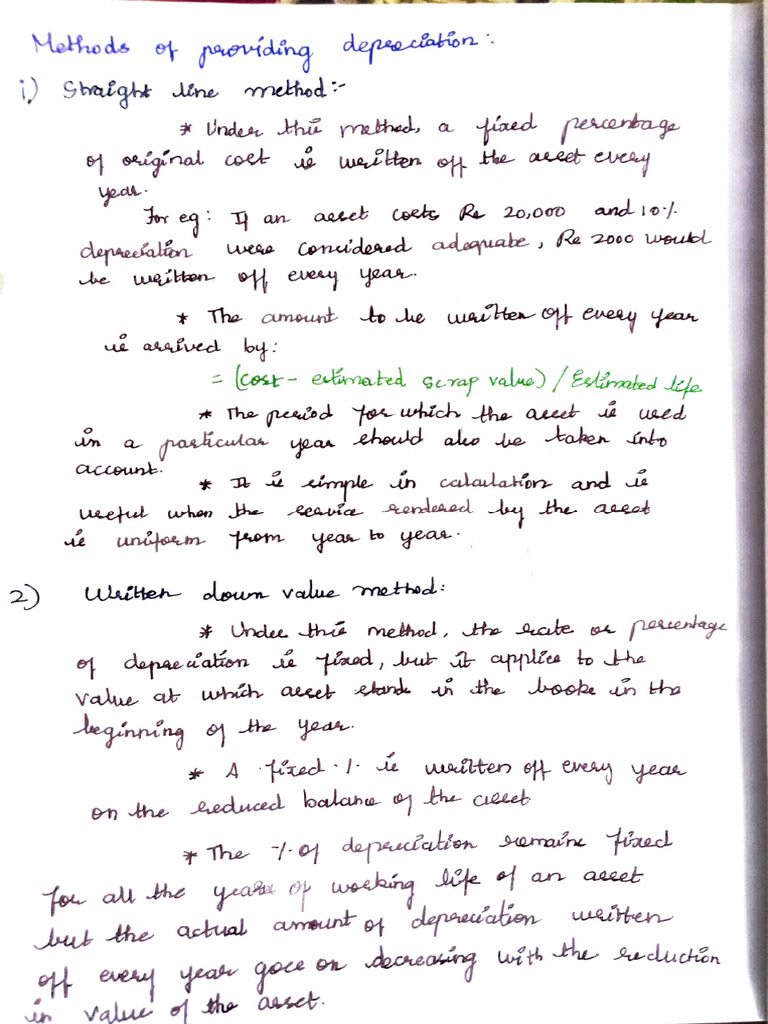 Methods of providing depreciation:
i) Straight line method:-
* Under this method, a fixed percentage
of original cost is written off the asset every
year.
For eg: If an asset costs Rs 20,000 and 10%
depreciation were considered adequate, Rs 2000 would
be written off every year.
* The amount to be written off every year
is arrived by:
= (cost - estimated scrap value) / Estimated life
* The period for which the asset is used
in a particular year should also be taken into
account.
* It is simple in calculation and is
useful when the service rendered by the asset
is uniform from year to year.
2) Written down value method:
* Under this method, the rate or percentage
of depreciation is fixed, but it applies to the
value at which asset stands in the books in the
beginning of the year.
* A fixed % is written off every year
on the reduced balance of the asset
* The % of depreciation remains fixed
for all the years of working life of an asset
but the actual amount of depreciation written
off every year goes on decreasing with the reduction
in value of the asset.